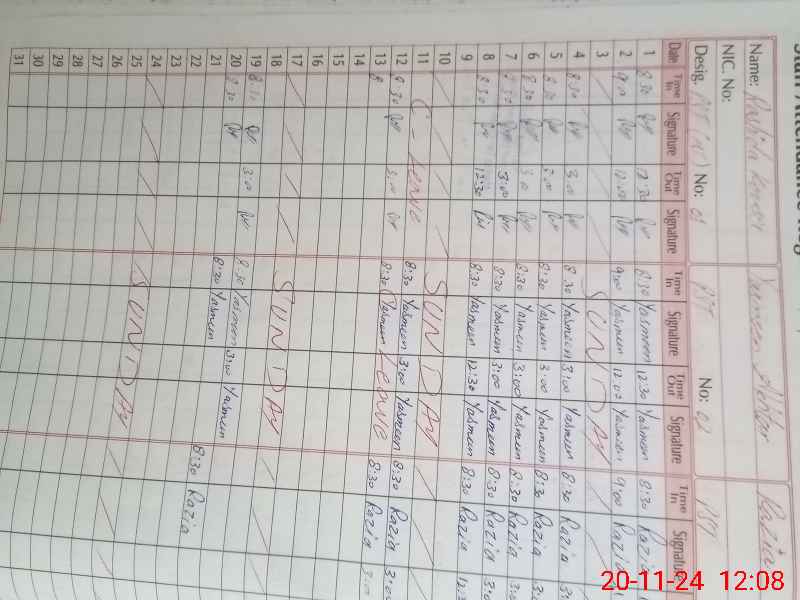 Staff Attendance Reg
Name: Rashida Kausar Yasmeen Akhtar Razia
NIC. No:
Desig. PST No: 01 PST No: 02 PST
Date Time In Signature Time Out Signature Time In Signature Time Out Signature Time In Signature
1 8:30 12:30 8:30 Yasmeen 12:30 Yasmeen 8:30 Razia
2 9:00 12:00 9:00 Yasmeen 12:00 Yasmeen 9:00 Razia
3 SUNDAY
4 8:30 3:00 8:30 Yasmeen 3:00 Yasmeen 8:30 Razia
5 8:30 3:00 8:30 Yasmeen 3:00 Yasmeen 8:30 Razia
6 8:30 3:00 8:30 Yasmeen 3:00 Yasmeen 8:30 Razia
7 8:30 3:00 8:30 Yasmeen 3:00 Yasmeen 8:30 Razia
8 8:30 12:30 8:30 Yasmeen 12:30 Yasmeen 8:30 Razia
9
10 SUNDAY
11 C Leave
12 8:30 3:00 8:30 Yasmeen 3:00 Yasmeen 8:30 Razia 3:00
13 8 8:30 Yasmeen Leave 8:30 Razia 3:00
14
15
16
17
18 SUNDAY
19 8:30 3:00
20 8:30 8:30 Yasmeen 3:00 Yasmeen
21 8:30 Yasmeen
22 8:30 Razia
23
24
25 SUNDAY
26
27
28
29
30
31
20-11-24 12:08